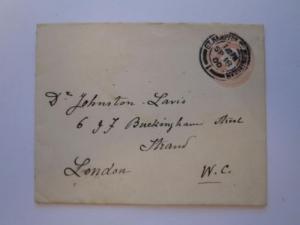 SP 18
00
Dr Johnston-Lavis
6 & 7 Buckingham Street
Strand
London W.C.